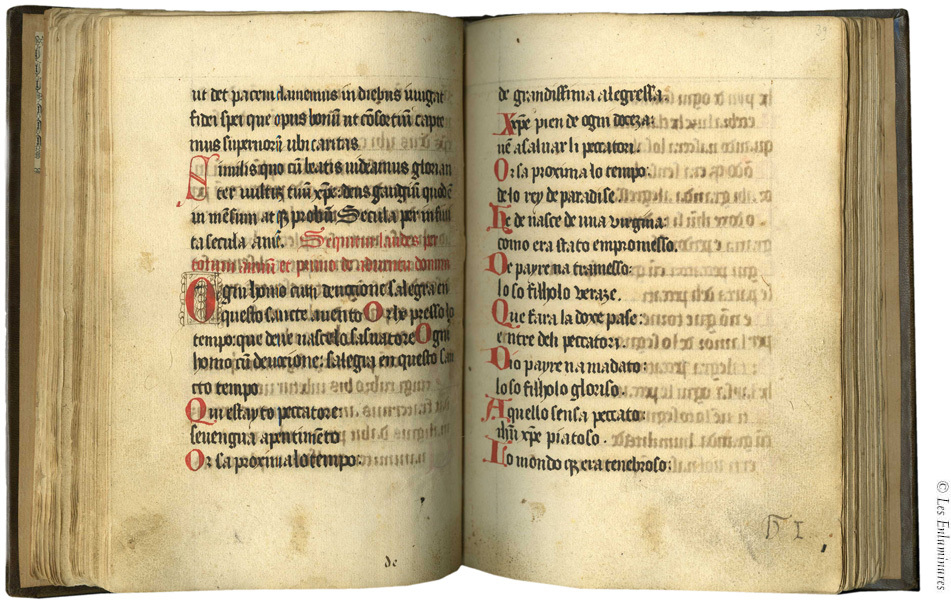 ut det pacem. dum emus in diebus uiuga
fidei spei que opus bonū ut cōsortiū capia
mus superiorū ubi caritas
Simulis quo cū beatis uideamus glorian
ter uultū tuū xp̄e deus gaudiū quod ē
in mēsum atqȝ probū Secula per infini
ta secula amē. Sequntur laudes per
totum annū et primo de aduentu domini
Ogni homo cum deuocione salegra en
questo sancto auento Or se presso lo
tempo: que deue nascer lo saluatore Ogni
homo cū deuocione: salegra en questo san
cto tempo
Qui estayto peccatore:
se uengna a pentimēto
Or sa proxima lo tempo:
de
de grandissima alegressa.
Xp̄e pien de ogni doceza:
uē a saluar li peccatori.
Or sa proxima lo tempo:
de lo rey de paradise.
He de nasce de una uirgina
como era stato empromesso.
De payre na tramesso:
lo so filholo ueraze.
Que fara la doxe pase:
entre deli peccatori.
Dio payre na madato:
lo so filholo glorioso.
A quello sensa peccato:
ihū xp̄e piatoso.
Lo mondo qȝ era tenebroso:
h 1
© Les Enluminures